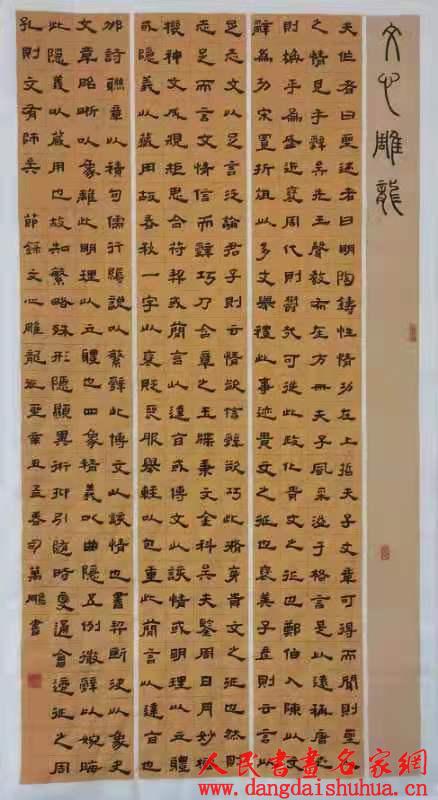 文心雕龍
夫作者曰聖述者曰明陶鑄性情功在上哲夫子文章可得而聞則聖人
之情見乎辭矣先王聲教布在方冊夫子風采溢于格言是以遠稱唐世
則煥乎為盛近褒周代則鬱哉可從此政化貴文之征也鄭伯入陳以文
辭為功宋置折俎以多文舉禮此事迹貴文之征也褒美子產則云言以
足志文以足言泛論君子則云情欲信辭欲巧此脩身貴文之征也然則
志足而言文情信而辭巧乃含章之玉牒秉文金科矣夫鑒周日月妙極
機神文成規矩思合符契或簡言以達旨或博文以該情或明理以立體
或隱義以藏用故春秋一字以褒貶喪服舉輕以包重此簡言以達旨也
邠詩聯章以積句儒行縟說以繁辭此博文以該情也書契斷決以象夬
文章昭晰以象離此明理以立體也四象精義以曲隱五例微辭以婉晦
此隱義以藏用也故知繁略殊形隱顯異術抑引隨時變通會適征之周
孔則文有師矣 節錄文心雕龍征聖辛丑孟春司萬鵬書
人民書畫名家網
www.dangdaishuhua.com